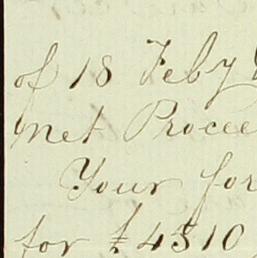 of 18 Feby
Net Procee
Your for
for £4310